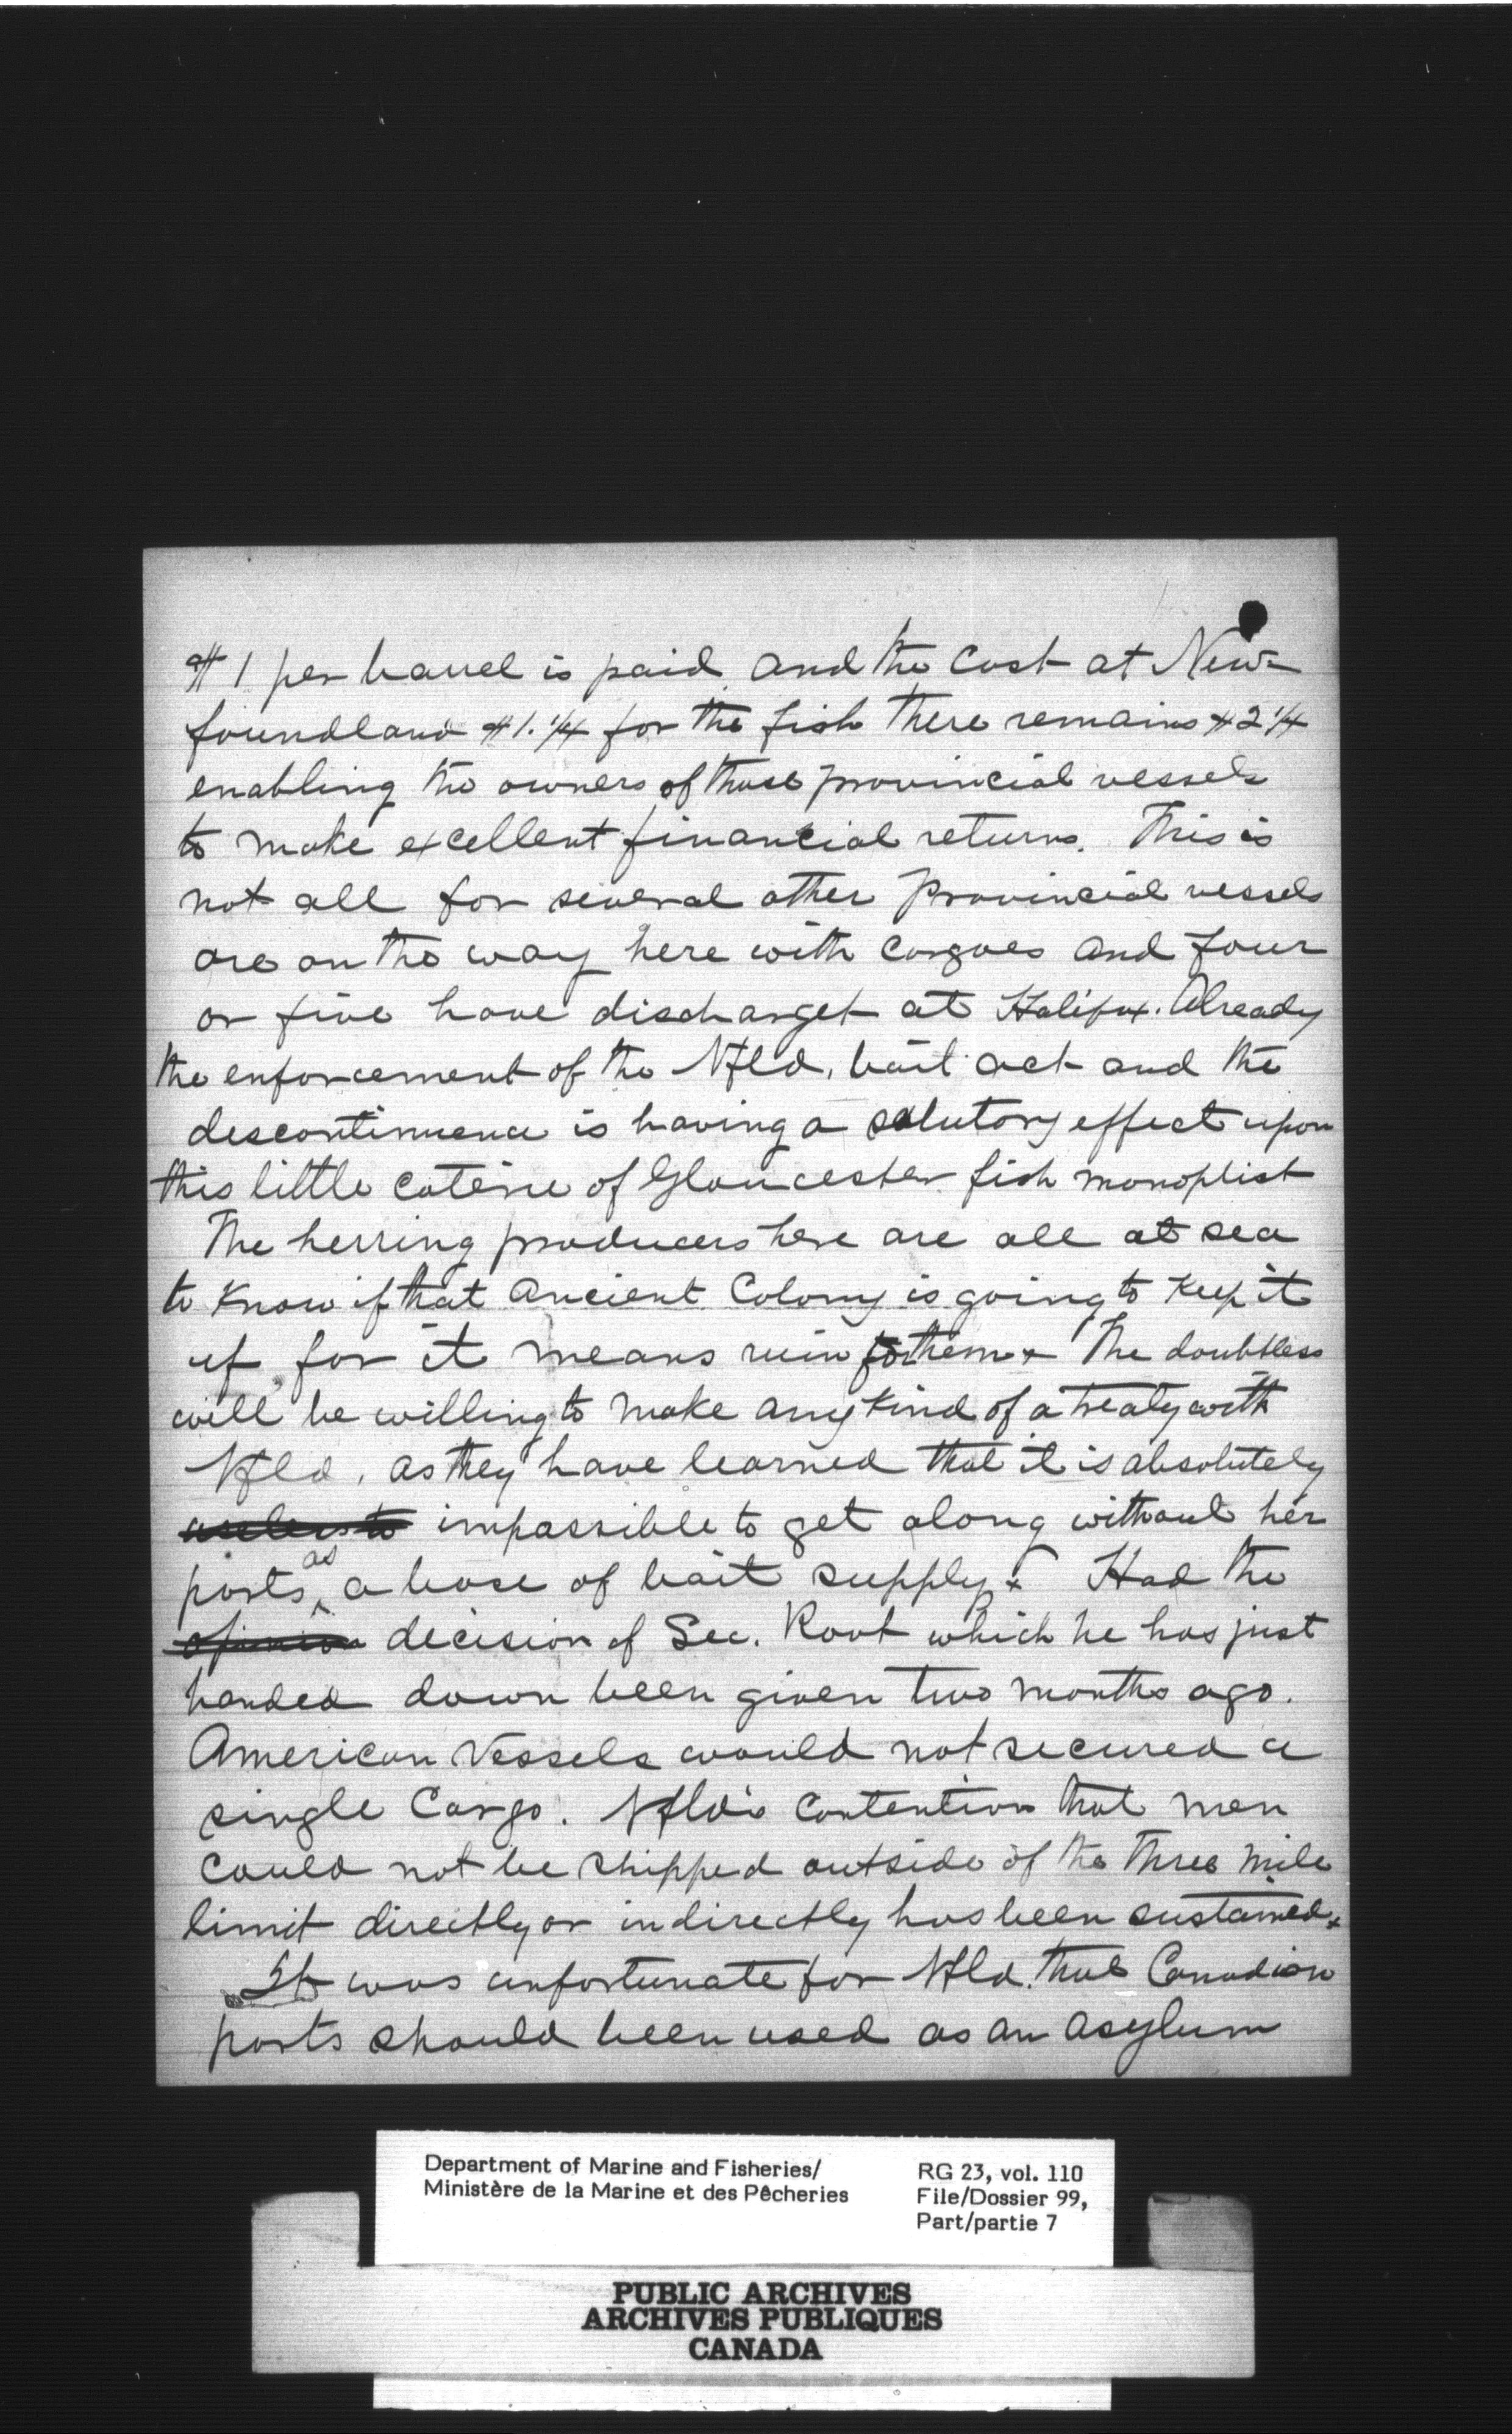 $1 per barrel is paid and the cost at New-
foundland $1.1/4 for the fish there remains $2 1/4
enabling the owners of those provincial vessels
to make excellent financial returns. This is
not all for several other Provincial vessels
are on the way here with cargoes and four
or five have discharget at Halifax. Already
the enforcement of the Nfld. bait act and the
descontinuence is having a salutory effect upon
this little coterie of Gloucester fish monoplist
The herring producers here are all at sea
to know if that Ancient Colony is going to keep it
up for it means ruin for them x The doubtless
will be willing to make any kind of a treaty with
Nfld. as they have learned that it is absolutely
impossible to get along without her
ports as a base of bait supply x Had the
opinion decision of Sec. Root which he has just
handed down been given two months ago.
American Vessels would not secured a
single Cargo. Nfld's contention that men
could not be shipped outside of the three mile
limit directly or indirectly has been sustained x
It was unfortunate for Nfld. that Canadian
ports should been used as an asylum
Department of Marine and Fisheries/
Ministère de la Marine et des Pêcheries
RG 23, vol. 110
File/Dossier 99,
Part/partie 7
PUBLIC ARCHIVES
ARCHIVES PUBLIQUES
CANADA